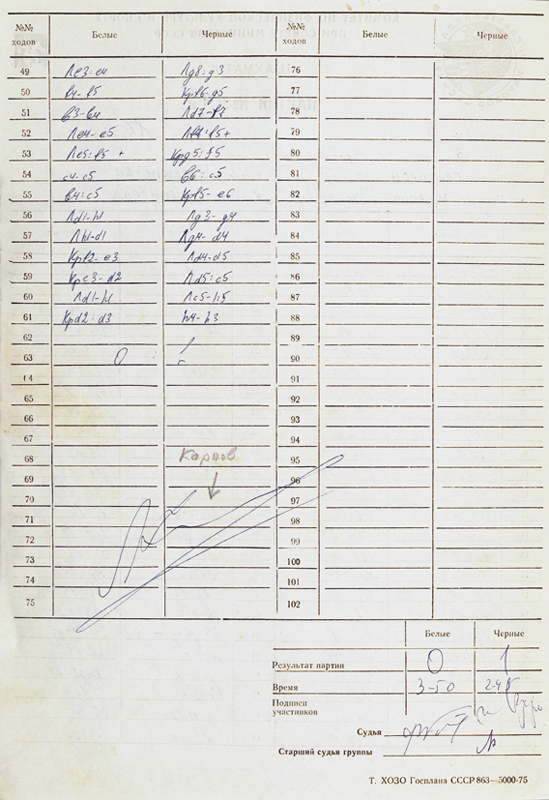 №№ ходов Белые Черные №№ ходов Белые Черные
49 Ле3:е4 Лg8:g3 76
50 f4-f5 Крf6-g5 77
51 78
52 Ле4-е5 79
53 Ле5:f5+ Крg5:f5 80
54 с4-с5 в6:с5 81
55 в4:с5 Крf5-е6 82
56 Лd1-h1 Лg3-g4 83
57 Лh1-d1 Лg4-d4 84
58 Крf2-е3 Лd4-d5 85
59 Кре3-d2 Лd5:с5 86
60 Лd1-h1 Лс5-h5 87
61 Крd2:d3 h4-h3 88
62 89
63 0 1 90
64 91
65 92
66 93
67 94
68 Карпов 95
69 96
70 97
71 98
72 99
73 100
74 101
75 102
Белые Черные
Результат партии 0 1
Время 3-50
Подписи участников
Судья
Старший судья группы
Т. ХОЗО Госплана СССР 863—5000-75